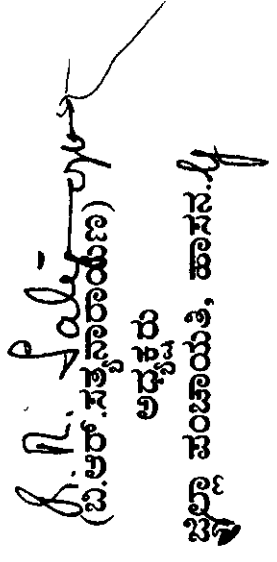 (ಬಿ.ಆರ್.ಸತ್ಯನಾರಾಯಣ)
ಅಧ್ಯಕ್ಷರು
ಜಿಲ್ಲಾ ಪಂಚಾಯತಿ, ಹಾಸನ.